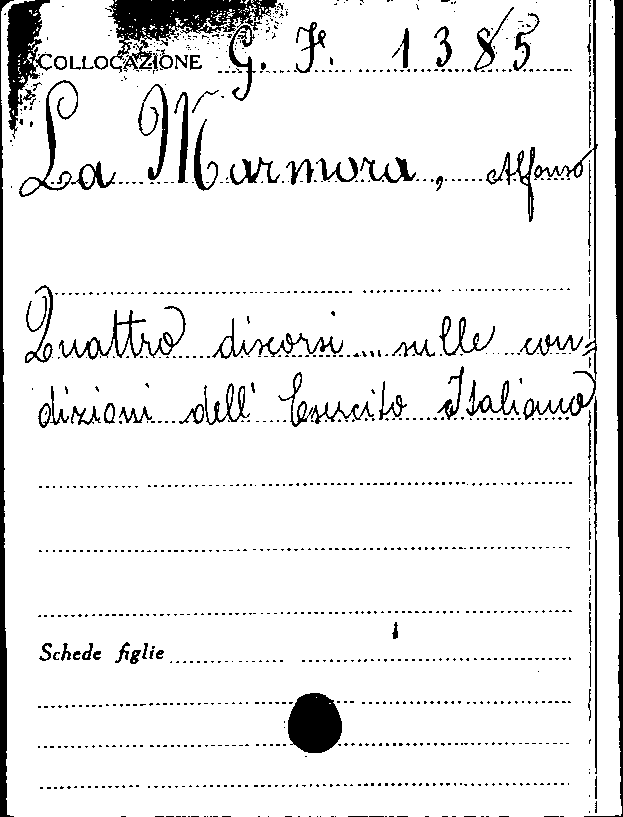 COLLOCAZIONE G. F. 1385
La Marmora, Alfonso
Quattro discorsi ... sulle con=
dizioni dell' Esercito Italiano
Schede figlie